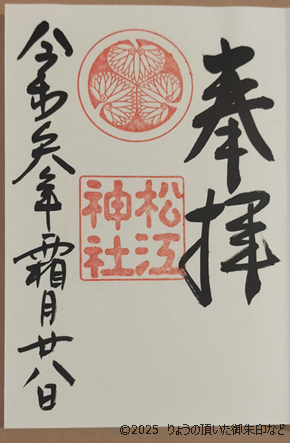 奉拝
松江
神社
令和参年霜月廿八日
©2025 りょうの頂いた御朱印など